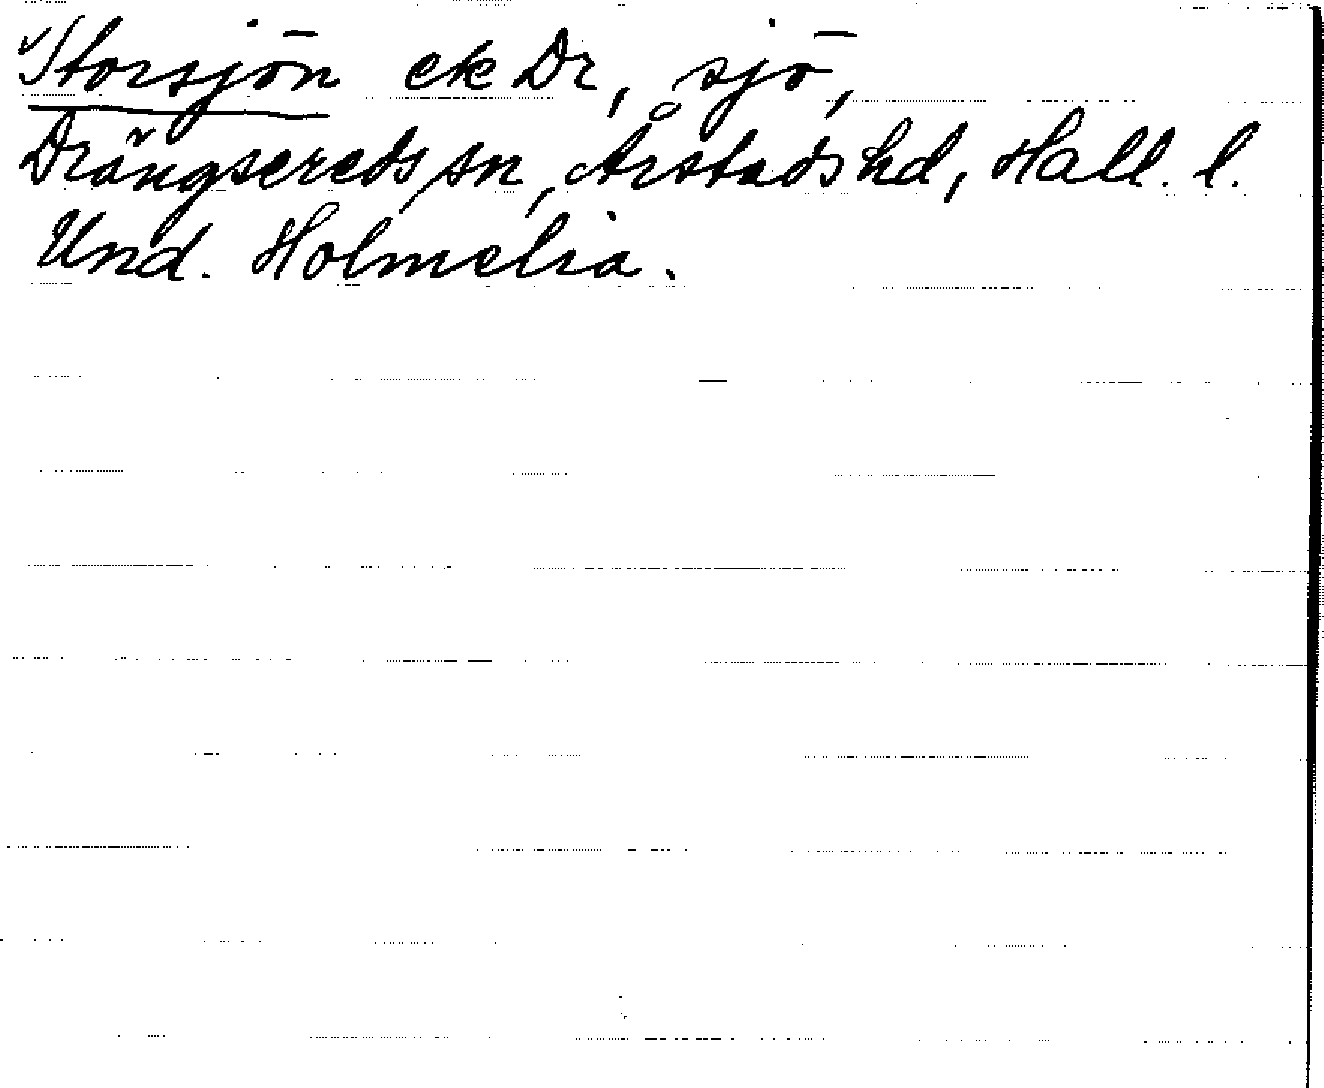 Storsjön ek Dr, sjö,
Drängsereds sn, Årstads hd, Hall. l.
Und. Holmelia.